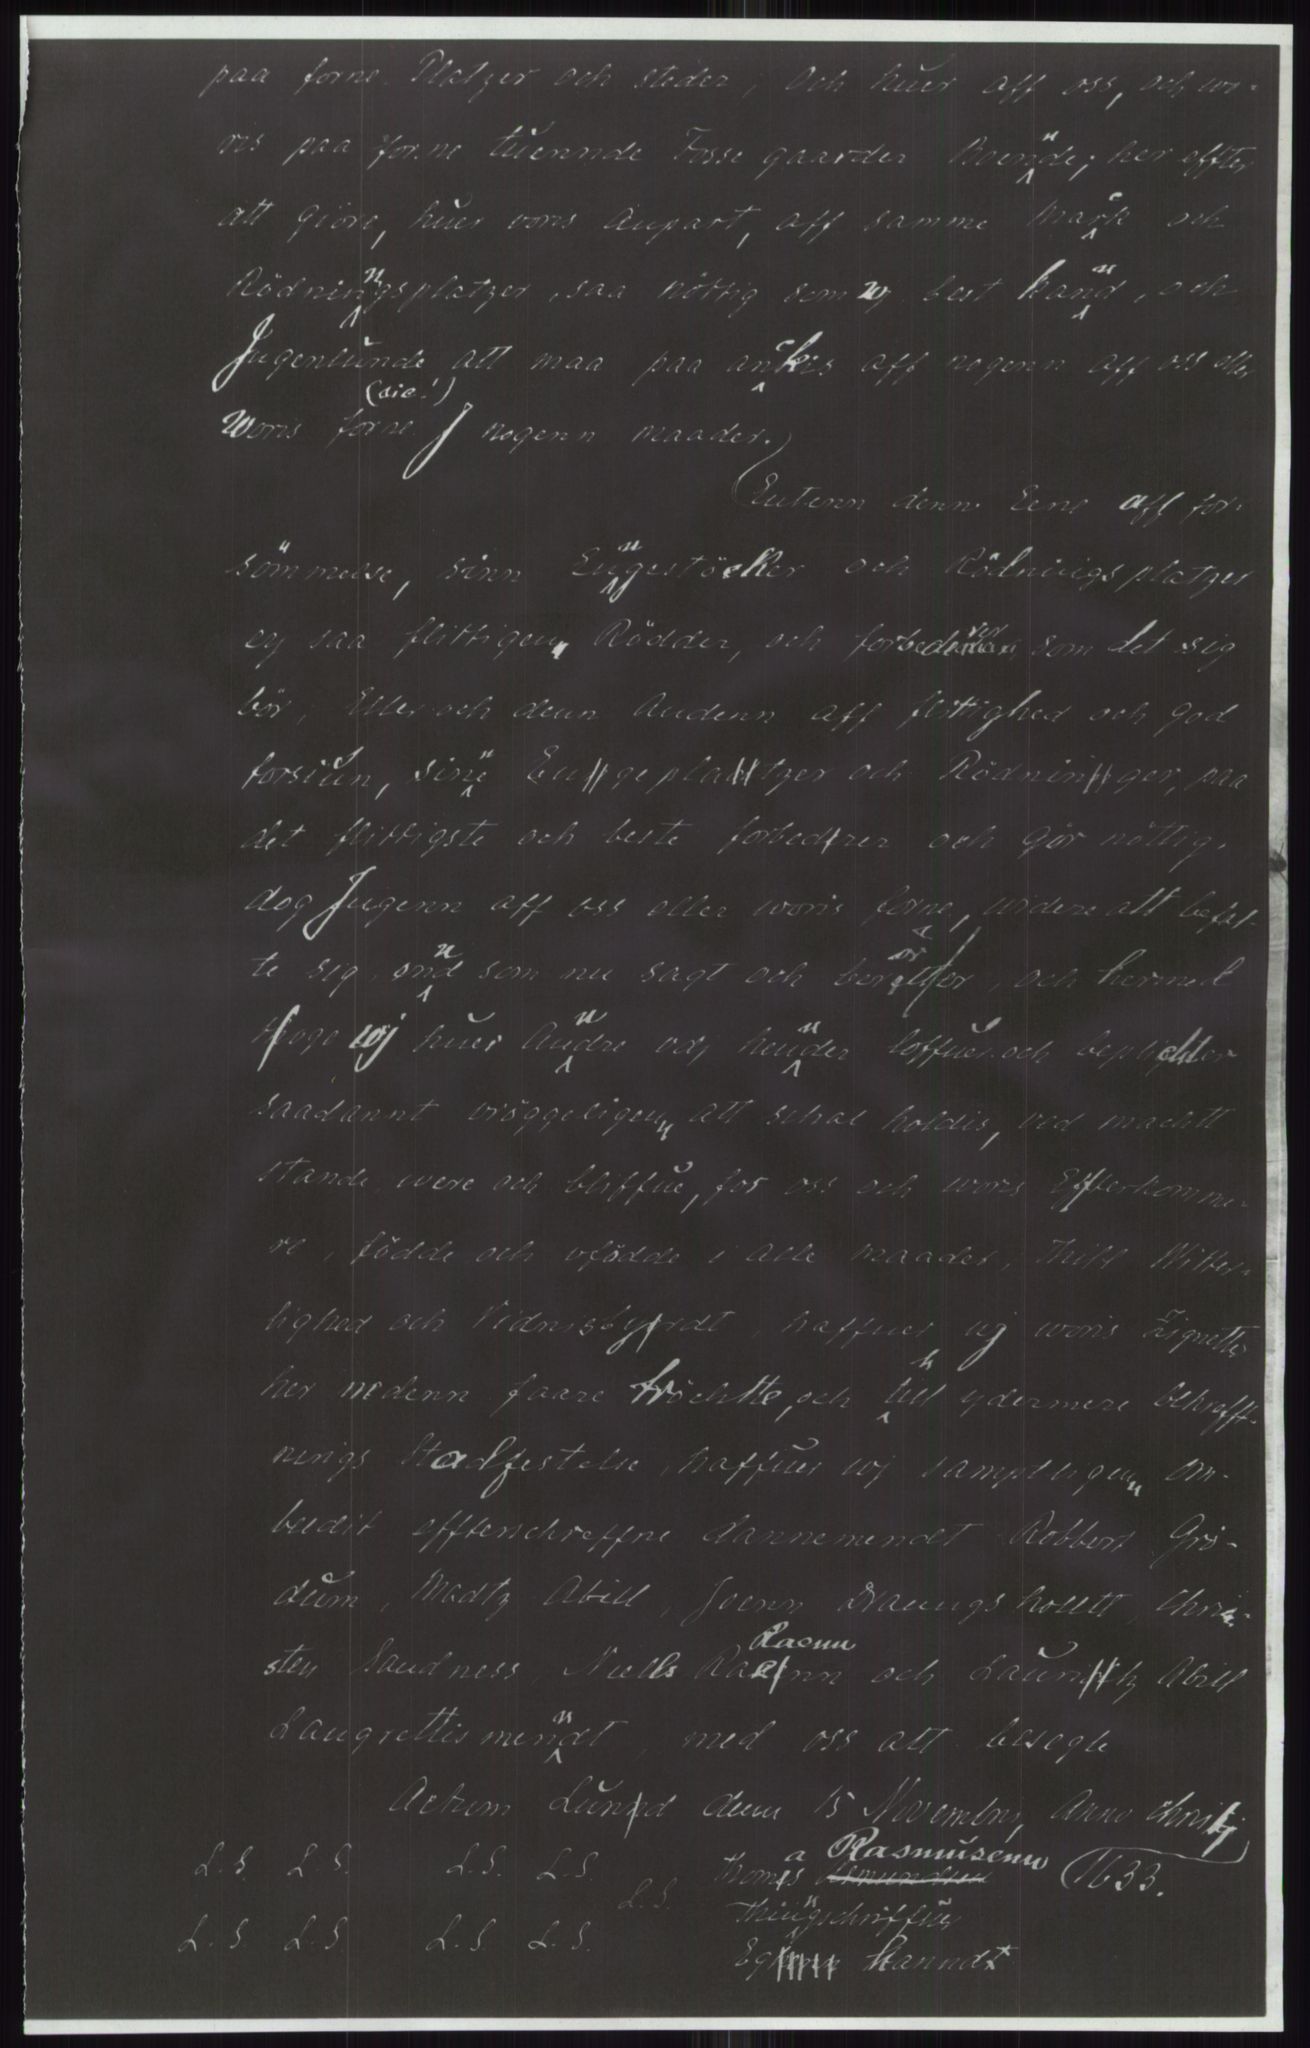 paa forne Platzer och steder, och huer aff oss, och wo-
ris paa forne tuennde Fosse gaarder Boennde, her effter
att giöre, huer voris Anpart, aff samme Mark och
Rödninngsplatzer, saa nöttig som wj best kannd, och
Jngenlunde att maa paa ankis aff nogenn aff oss eller
(sic!)
Woris forne J nogenn maader.
Enten denn Eene aff for-
sömmelse, sinn Enngestöcker och Rödningsplatzer
ej saa flittigenn Rödder, och forbedrer som det sig
bör, Eller och denn Andenn aff flittighed och god
forsiun, sine Engeplatzer och Rödninger, paa
det flittigste och beste forbedrer och gör nöttig,
dog Jngenn aff oss eller woris forne, uidere att befat-
te sig, end som nu sagt och berört er, och hermed
wj huer Andre vdj hender loffuer och beplichter
saadannt vröggeligenn att schal holdis, ved machtt
stande were och bliffue, for oss och woris Effterkomme-
re, födde och vfödde i alle maader, Thill Witter-
lighed och Vidnisbyrdt, haffuer wj woris Zignetter
her nedenn faare tröchtte, och thill ydermere bekrefft-
nings Stadfestelse, haffuer wj sampteligenn om-
bedit effterschreffne dannemendt Robbert Grö-
dum, Madtz Abill, Joenn Hauugshollt, Chri-
sten Sandness, Niells Rasmu och Lauritz Abill
Laugrettismenndt, med oss att besegle
Actum Lund denn 15 Novembrij Anno Christj
1633.
L.S. L.S. L.S. L.S. Thomas Rasmusenn
L.S. Thinngschriffuer
L.S. L.S. L.S. L.S. Eg Hanndt